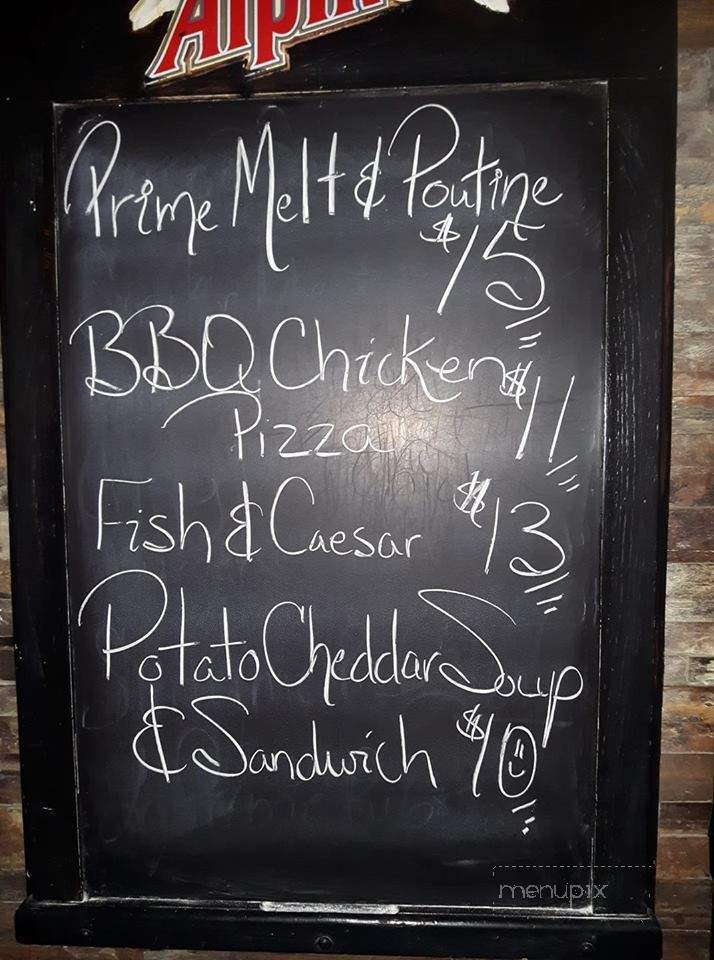 Prime Melt & Poutine
$15
BBQ Chicken
Pizza $11
Fish & Caesar $13
Potato Cheddar Soup
& Sandwich $10
menupix